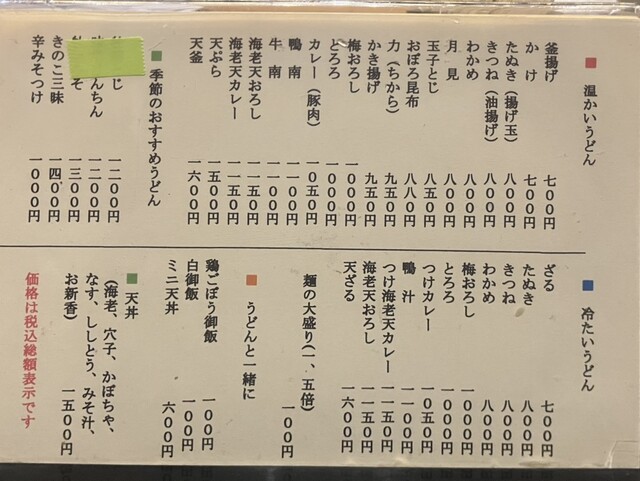 温かいうどん
釜揚げ 七〇〇円
かけ 七〇〇円
たぬき(揚げ玉) 八〇〇円
きつね(油揚げ) 八〇〇円
わかめ 八〇〇円
月見 八〇〇円
玉子とじ 八五〇円
おぼろ昆布 八八〇円
力(ちから) 九五〇円
かき揚げ 九五〇円
梅おろし 一〇〇〇円
とろろ 一〇〇〇円
カレー(豚肉) 一〇五〇円
鴨南 一一〇〇円
牛南 一一〇〇円
海老天おろし 一一五〇円
海老天カレー 一一五〇円
天ぷら 一五〇〇円
天釜 一六〇〇円
季節のおすすめうどん
じ 一二〇〇円
んちん 一二〇〇円
そ 一三〇〇円
きのこ三昧 一四〇〇円
辛みそつけ 一〇〇〇円
冷たいうどん
ざる 七〇〇円
たぬき 八〇〇円
きつね 八〇〇円
わかめ 八〇〇円
梅おろし 一〇〇〇円
とろろ 一〇〇〇円
つけカレー 一〇五〇円
鴨汁 一一〇〇円
つけ海老天カレー 一一五〇円
海老天おろし 一一五〇円
天ざる 一六〇〇円
麺の大盛り(一、五倍) 一〇〇円
うどんと一緒に
鶏ごぼう御飯 一〇〇円
白御飯 一〇〇円
ミニ天丼 六〇〇円
天丼
(海老、穴子、かぼちゃ、
なす、ししとう、みそ汁、
お新香) 一五〇〇円
価格は税込総額表示です